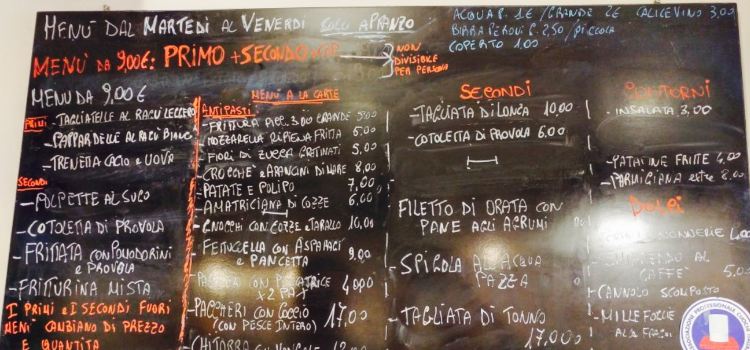 MENÙ DAL MARTEDÌ AL VENERDÌ SOLO A PRANZO
ACQUA P. 1€ / GRANDE 2€ CALICE VINO 3,00
BIRRA PERONI € 2,50 / PICCOLA
COPERTO 1,00
MENÙ DA 9,00€: PRIMO + SECONDO
NON
DIVISIBILE
PER PERSONA
MENU DA 9,00€
PRIMI
- TAGLIATELLE AL RAGÙ LEGGERO
- PAPPARDELLE AL RAGÙ BIANCO
- TRENETTA CACIO e UOVA
SECONDI
- POLPETTE AL SUGO
- COTOLETTA DI PROVOLA
- FRITTATA CON POMODORINI
e PROVOLA
- FRITTURINA MISTA
I PRIMI e I SECONDI FUORI
MENÙ CAMBIANO DI PREZZO
E QUANTITÀ
MENÙ A LA CARTE
ANTIPASTI
- FRITTURA PICC. 3,00 GRANDE 5,00
- MOZZARELLA RIPIENA FRITTA 6,00
- FIORI DI ZUCCA GRATINATI 5,00
- CROCCHÈ e ARANCINI DI MARE 8,00
- PATATE E POLIPO 7,00
- AMATRICIANA DI COZZE 6,00
- GNOCCHI CON COZZE e TARALLO 10,00
- FETUCCELLA CON ASPARAGI
e PANCETTA 9,00
CON PESCATRICE
x 2 PAX 40,00
- PACCHERI CON COCCIO 17,00
(CON PESCE INTERO)
- CHITARRA CON VONGOLE 12,00
SECONDI
- TAGLIATA DI LONZA 10,00
- COTOLETTA DI PROVOLA 6,00
FILETTO DI ORATA CON
PANE AGLI AGRUMI
- SPIGOLA ALL'ACQUA
PAZZA
- TAGLIATA DI TONNO
17,00
CONTORNI
- INSALATA 3,00
- PATATINE FRITTE 4,00
- PARMIGIANA 8,00
DOLCI
- SEMIFREDDO AL
CAFFÈ 5,00
- CANNOLO SCOMPOSTO
- MILLEFOGLIE